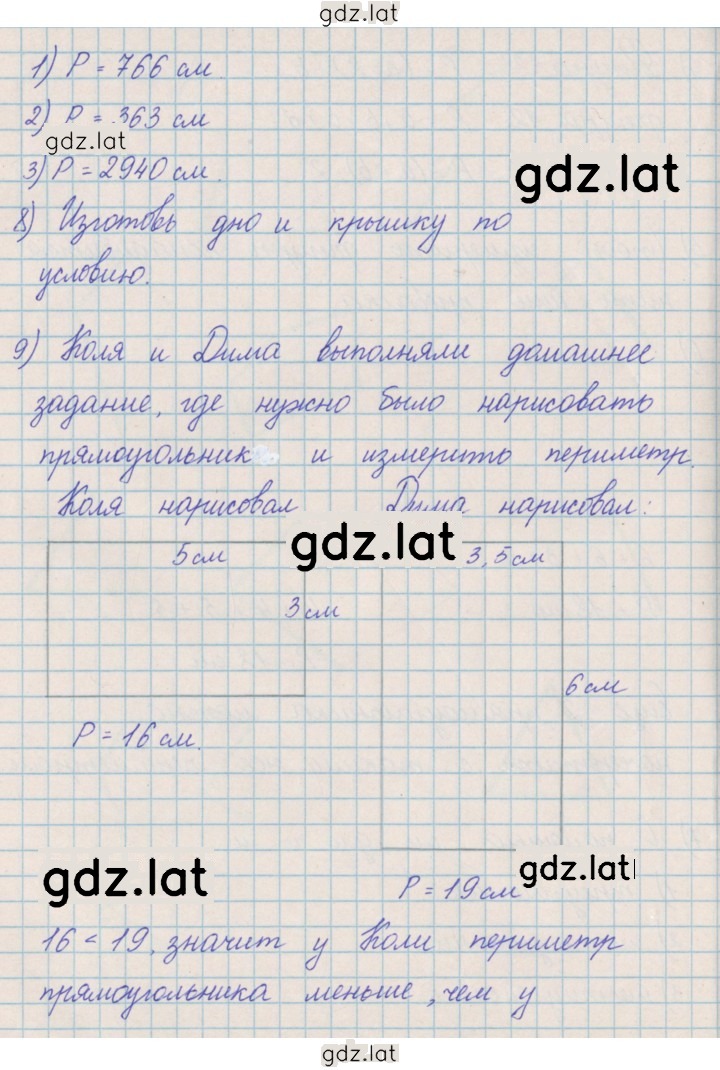 gdz.lat
1) P = 766 см.
2) P = 363 см
gdz.lat
3) P = 2940 см.
gdz.lat
8) Изготовь дно и крышку по
условию.
9) Коля и Дима выполняли домашнее
задание, где нужно было нарисовать
прямоугольник и измерить периметр.
Коля нарисовал Дима нарисовал:
gdz.lat
5 см 3,5 см
3 см
6 см
P = 16 см.
gdz.lat
gdz.lat
P = 19 см
16 < 19, значит у Коли периметр
прямоугольника меньше, чем у
gdz.lat